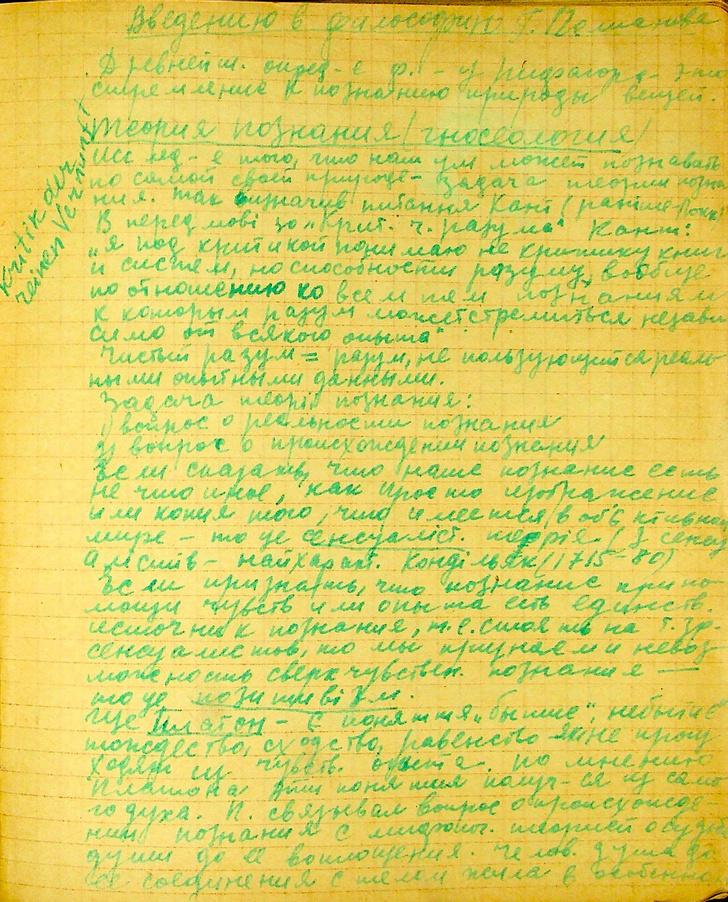 Введению в философию Г. Челпанова
Древнейш. опред-е ф. – у Пифагора – это
стремление к познанию природы вещей.
Теория познания (гносеология)
Исслед-е того, что наш ум может познавать
по самой своей природе – задача теории позна
ния. Так визначив питання Кант (раніше Локк)
В передмові до „Крит. ч. разума" Кант:
„я под критикой понимаю не критику книг
и систем, но способности разума вообще
по отношению ко всем тем познаниям
к которым разум может стремиться незави
симо от всякого опыта"
Чистый разум = разум, не пользующийся реаль
ными опытными данными.
Задача теорії познания:
1) вопрос о реальности познания
2) вопрос о происхождении познания
Если сказать, что наше познание есть
не что иное, как просто изображение
или копия того, что имеется в объективн
мире – то це сенсуаліст. теорія (з сенсу
алістів – найхаракт. Кондільяк (1715–80)
Если признать, что познание при по
мощи чувств или опыта есть единств.
источник познания, т.е. стоять на т. зр.
сенсуалистов, то мы признаем и невоз
можность сверхчувствен. познания –
то це позитивізм.
Ще Платон – є поняття „бытие", небытие
тождество, сходство, равенство – не проис
ходят из чувств. опыта. По мнению
Платона эти понятия получ-ся из само
го духа. П. связывал вопрос о происхожде
нии познания с мифолог. теорией о суде
души до её воплощения. Челов. душа до
её соединения с телом жила в особенно
Kritik der
reinen Vernunft